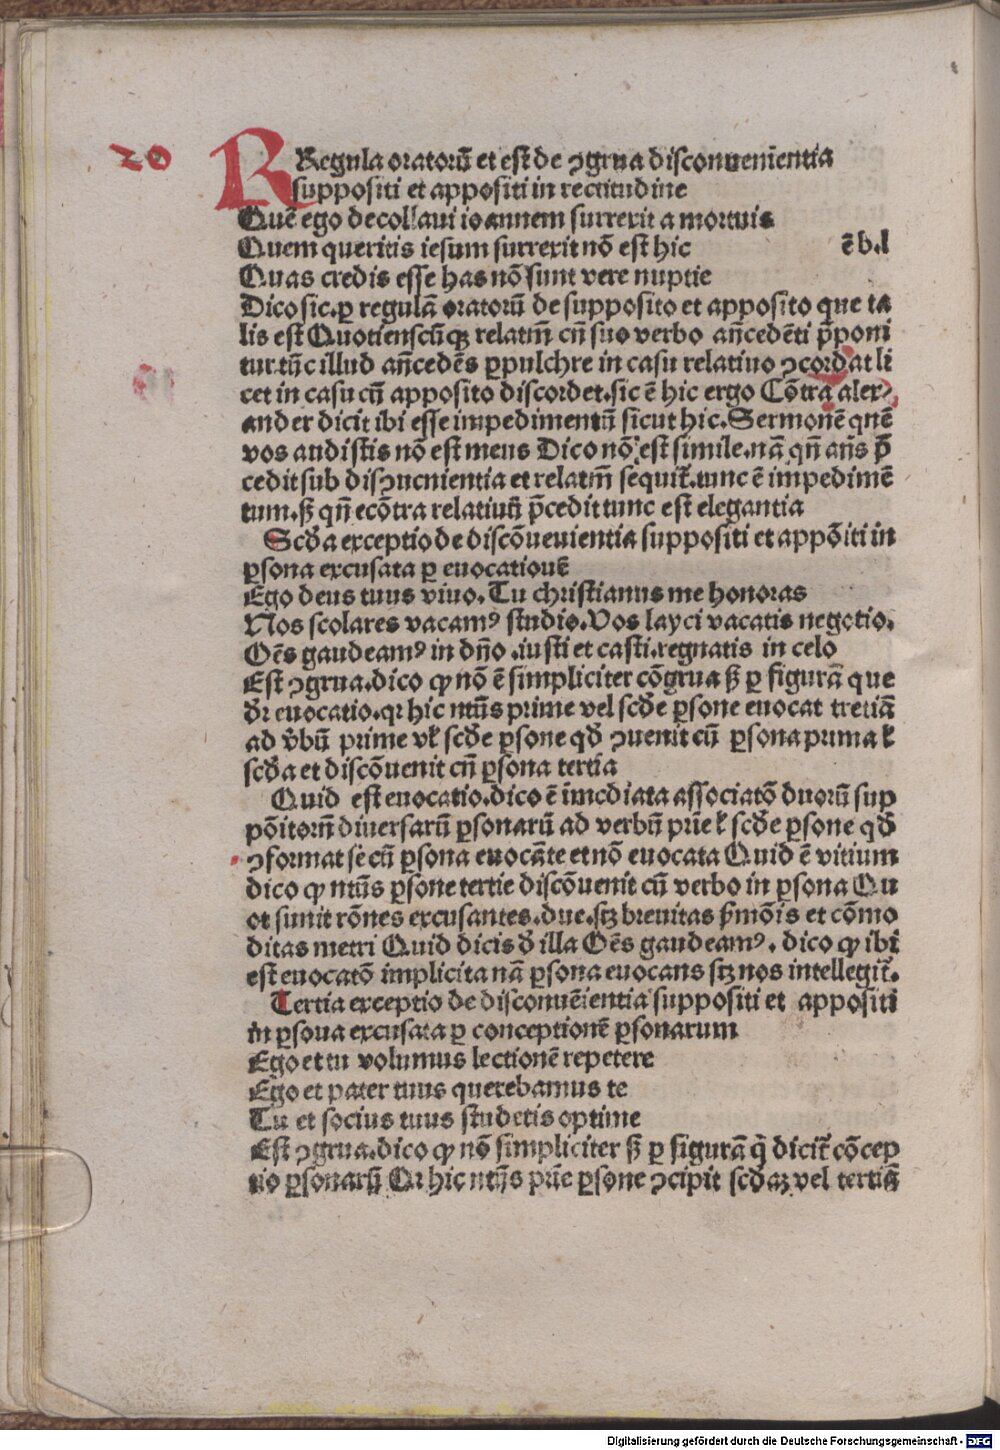 20
Regula oratorū et est de ɔgrua disconuenientia
suppositi et appositi in rectitudine
Quē ego decollaui ioannem surrexit a mortuis
Quem queritis iesum surrexit nō est hic ē b.l
Quas credis esse has nō sunt vere nuptie
Dico sic.ꝑ regulā oratorū de supposito et apposito que ta
lis est Quotienscūqꝫ relatiū cū suo verbo añcedēti p̄poni
tur.tūc illud añcedēs ꝑpulchre in casu relatiuo ɔcordat li
cet in casu cū apposito discordet.sic ē hic ergo Cōtra alex⸗
ander dicit ibi esse impedimentū sicut hic.Sermonē quē
vos audistis nō est meus Dico nō est simile.nā qn̄ añs p̄
cedit sub disɔuenientia et relatiū sequit᷑.tunc ē impedimē
tum.ꝭ qn̄ ecōtra relatiuū p̄cedit tunc est elegantia
Scd̄a exceptio de discōueuientia suppositi et appōiti in
ꝑsona excusata ꝑ euocationē
Ego deus tuus viuo.Tu christianus me honoras
Nos scolares vacamꝰ studio.Vos layci vacatis negotio.
Oēs gaudeamꝰ in dn̄o.iusti et casti.regnatis in celo
Est ɔgrua.dico ꝙ nō ē simpliciter cōgrua ꝭ ꝑ figurā que
dr̄ euocatio.qr hic ntūs prime vel scd̄e ꝑsone euocat tretiā
ad v̄bū prime vł scd̄e ꝑsone qd̄ ɔuenit cū ꝑsona prima ł
scd̄a et discōuenit cū ꝑsona tertia
Quid est euocatio.dico ē imediata associatō duorū sup
pōitorū diuersarū ꝑsonarū ad verbū prīe ł scd̄e ꝑsone qd̄
ɔformat se cū ꝑsona euocāte et nō euocata Quid ē vitium
dico ꝙ ntūs ꝑsone tertie discōuenit cū verbo in ꝑsona Qu
ot sunit rōnes excusantes.due.scꝫ breuitas ẜmōis et cōmo
ditas metri Quid dicis d̄ illa Oēs gaudeamꝰ. dico ꝙ ibi
est euocatō implicita nā ꝑsona euocans scꝫ nos intellegit᷑.
Tertia exceptio de disconuēientia suppositi et appositi
in ꝑsoua excusata ꝑ conceptionē ꝑsonarum
Ego et tu volumus lectionē repetere
Ego et pater tuus querebamus te
Tu et socius tuus studetis optime
Est ɔgrua.dico ꝙ nō simpliciter ꝭ ꝑ figurā q̄ dicit᷑ cōcep
tio ꝑsonarū Qr hic ntūs prīe ꝑsone ɔcipit scd̄aꝫ vel tertiā
Digitalisierung gefördert durch die Deutsche Forschungsgemeinschaft - DFG